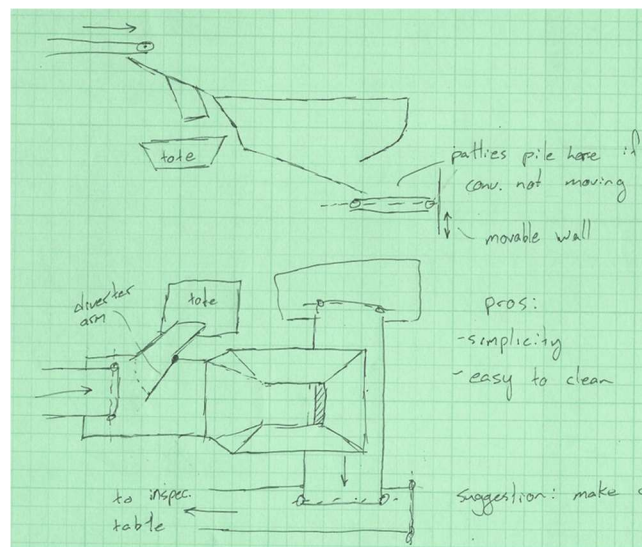 tote
patties pile here if
conv. not moving
movable wall
diverter
arm
tote
pros:
-simplicity
-easy to clean
to inspec.
table
suggestion: make